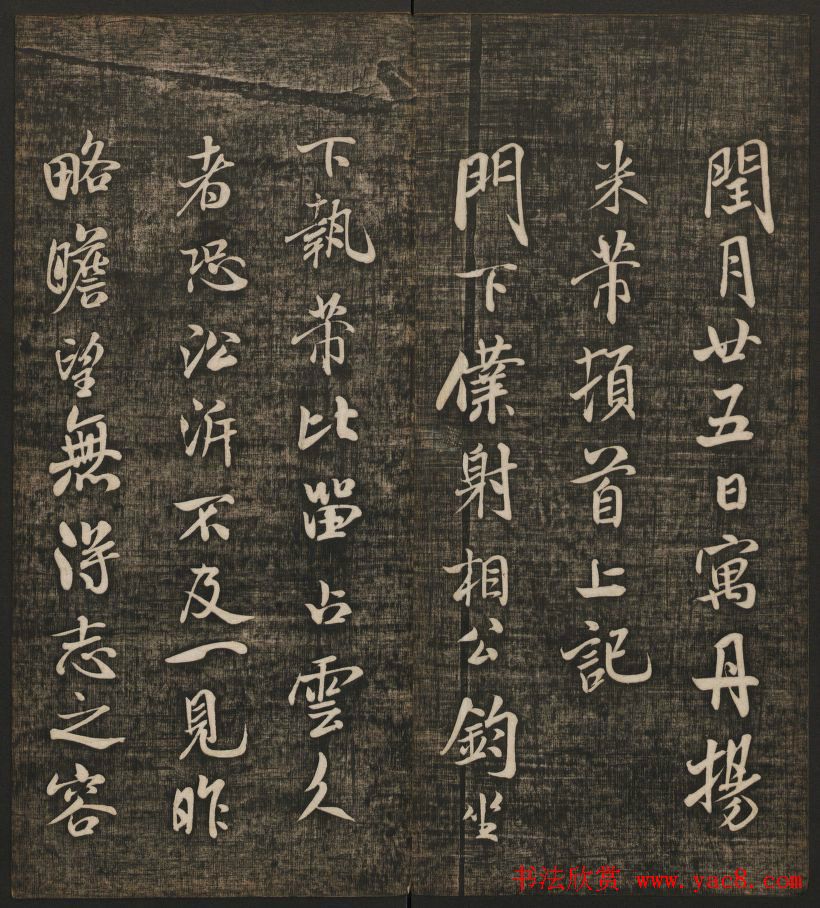 閏月廿五日寓丹揚
米芾頓首上記
門下僕射相公鈞坐
下執芾比留占雲久
者恐沿泝不及一見昨
略瞻望無得志之容
书法欣赏 www.yac8.com